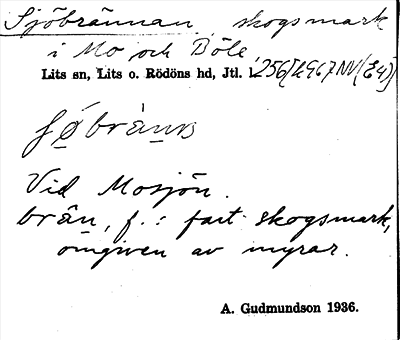 Sjöbrännan, skogsmark
i Mo och Böle,
Lits sn, Lits o. Rödöns hd, Jtl. l. 256/2967 NV (E4)
Vid Mosjön.
brän, f.: fast skogsmark,
omgiven av myrar.
A. Gudmundson 1936.